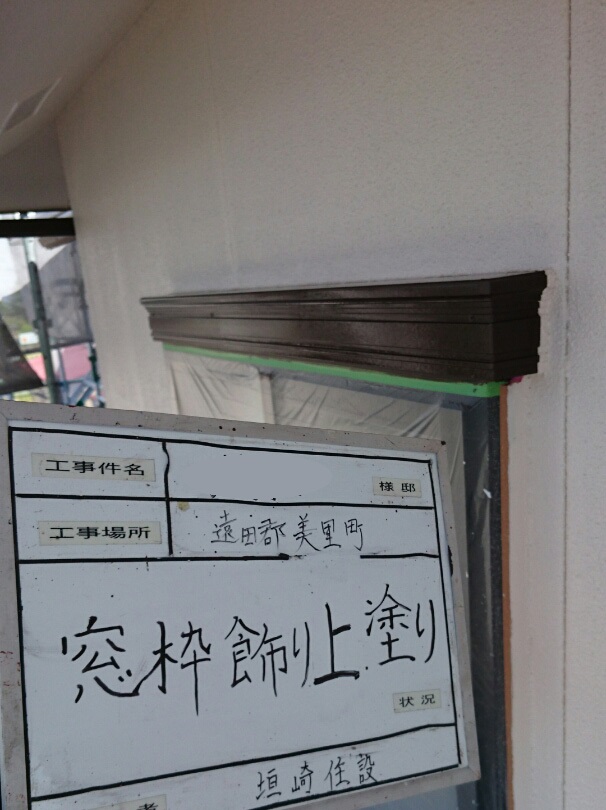 工事件名
様邸
工事場所 遠田郡美里町
窓枠飾り上塗り
状況
垣崎住設
考